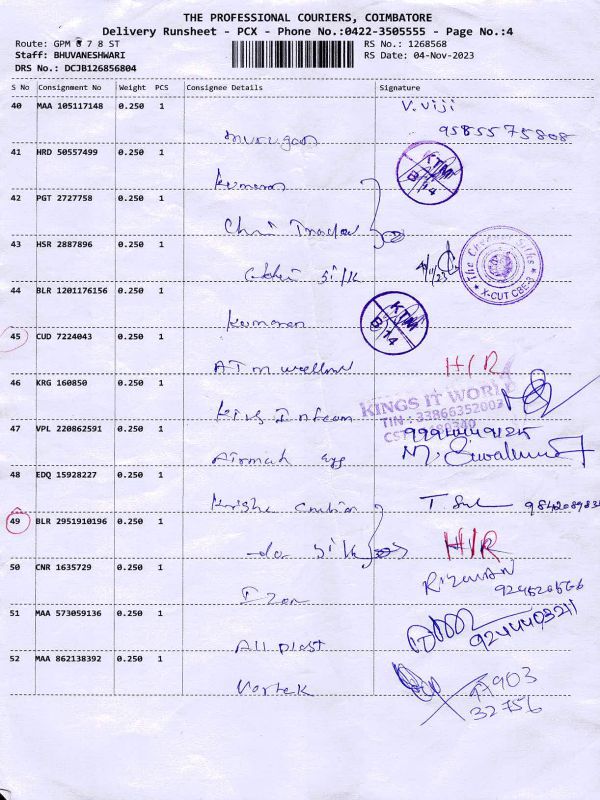 THE PROFESSIONAL COURIERS, COIMBATORE
Delivery Runsheet - PCX - Phone No.:0422-3505555 - Page No.:4
Route: GPM 6 7 8 ST
RS No.: 1268568
Staff: BHUVANESHWARI
RS Date: 04-Nov-2023
DRS No.: DCJB126856804
S No Consignment No Weight PCS Consignee Details Signature
40 MAA 105117148 0.250 1 V. Viji
murugan 9585575808
41 HRD 50557499 0.250 1 KTM B/14
Kumaran
42 PGT 2727758 0.250 1
43 HSR 2887896 0.250 1 4/11/23 The Chennai Silks
X-CUT CBE-3
silk
44 BLR 1201176156 0.250 1 KTM B/14
Kumaran
45 CUD 7224043 0.250 1
ATM H/R
46 KRG 160850 0.250 1 KINGS IT WORLD
TIN : 33866352007
Kings Infocom CST
47 VPL 220862591 0.250 1
48 EDQ 15928227 0.250 1
Krishna 
49 BLR 2951910196 0.250 1
-do- silk H/R
50 CNR 1635729 0.250 1 RIZWAN
Izon
51 MAA 573059136 0.250 1 9244403211
All plast
52 MAA 862138392 0.250 1 903
Vortek 32756